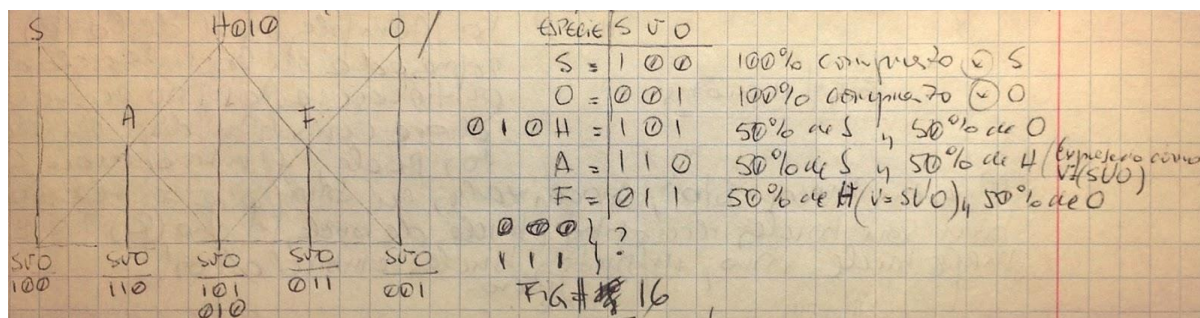 S H010 O
A F
SVO SVO SVO SVO SVO
100 110 101 011 001
010
ESPECIE S V O
S = 1 0 0 100% compuesto x S
O = 0 0 1 100% compuesto x O
0 1 0 H = 1 0 1 50% de S y 50% de O
A = 1 1 0 50% de S y 50% de H (Expresado como
V=(SVO)
F = 0 1 1 50% de H (V=SVO) y 50% de O
0 0 0 } ?
1 1 1 } ?
FIG# 16